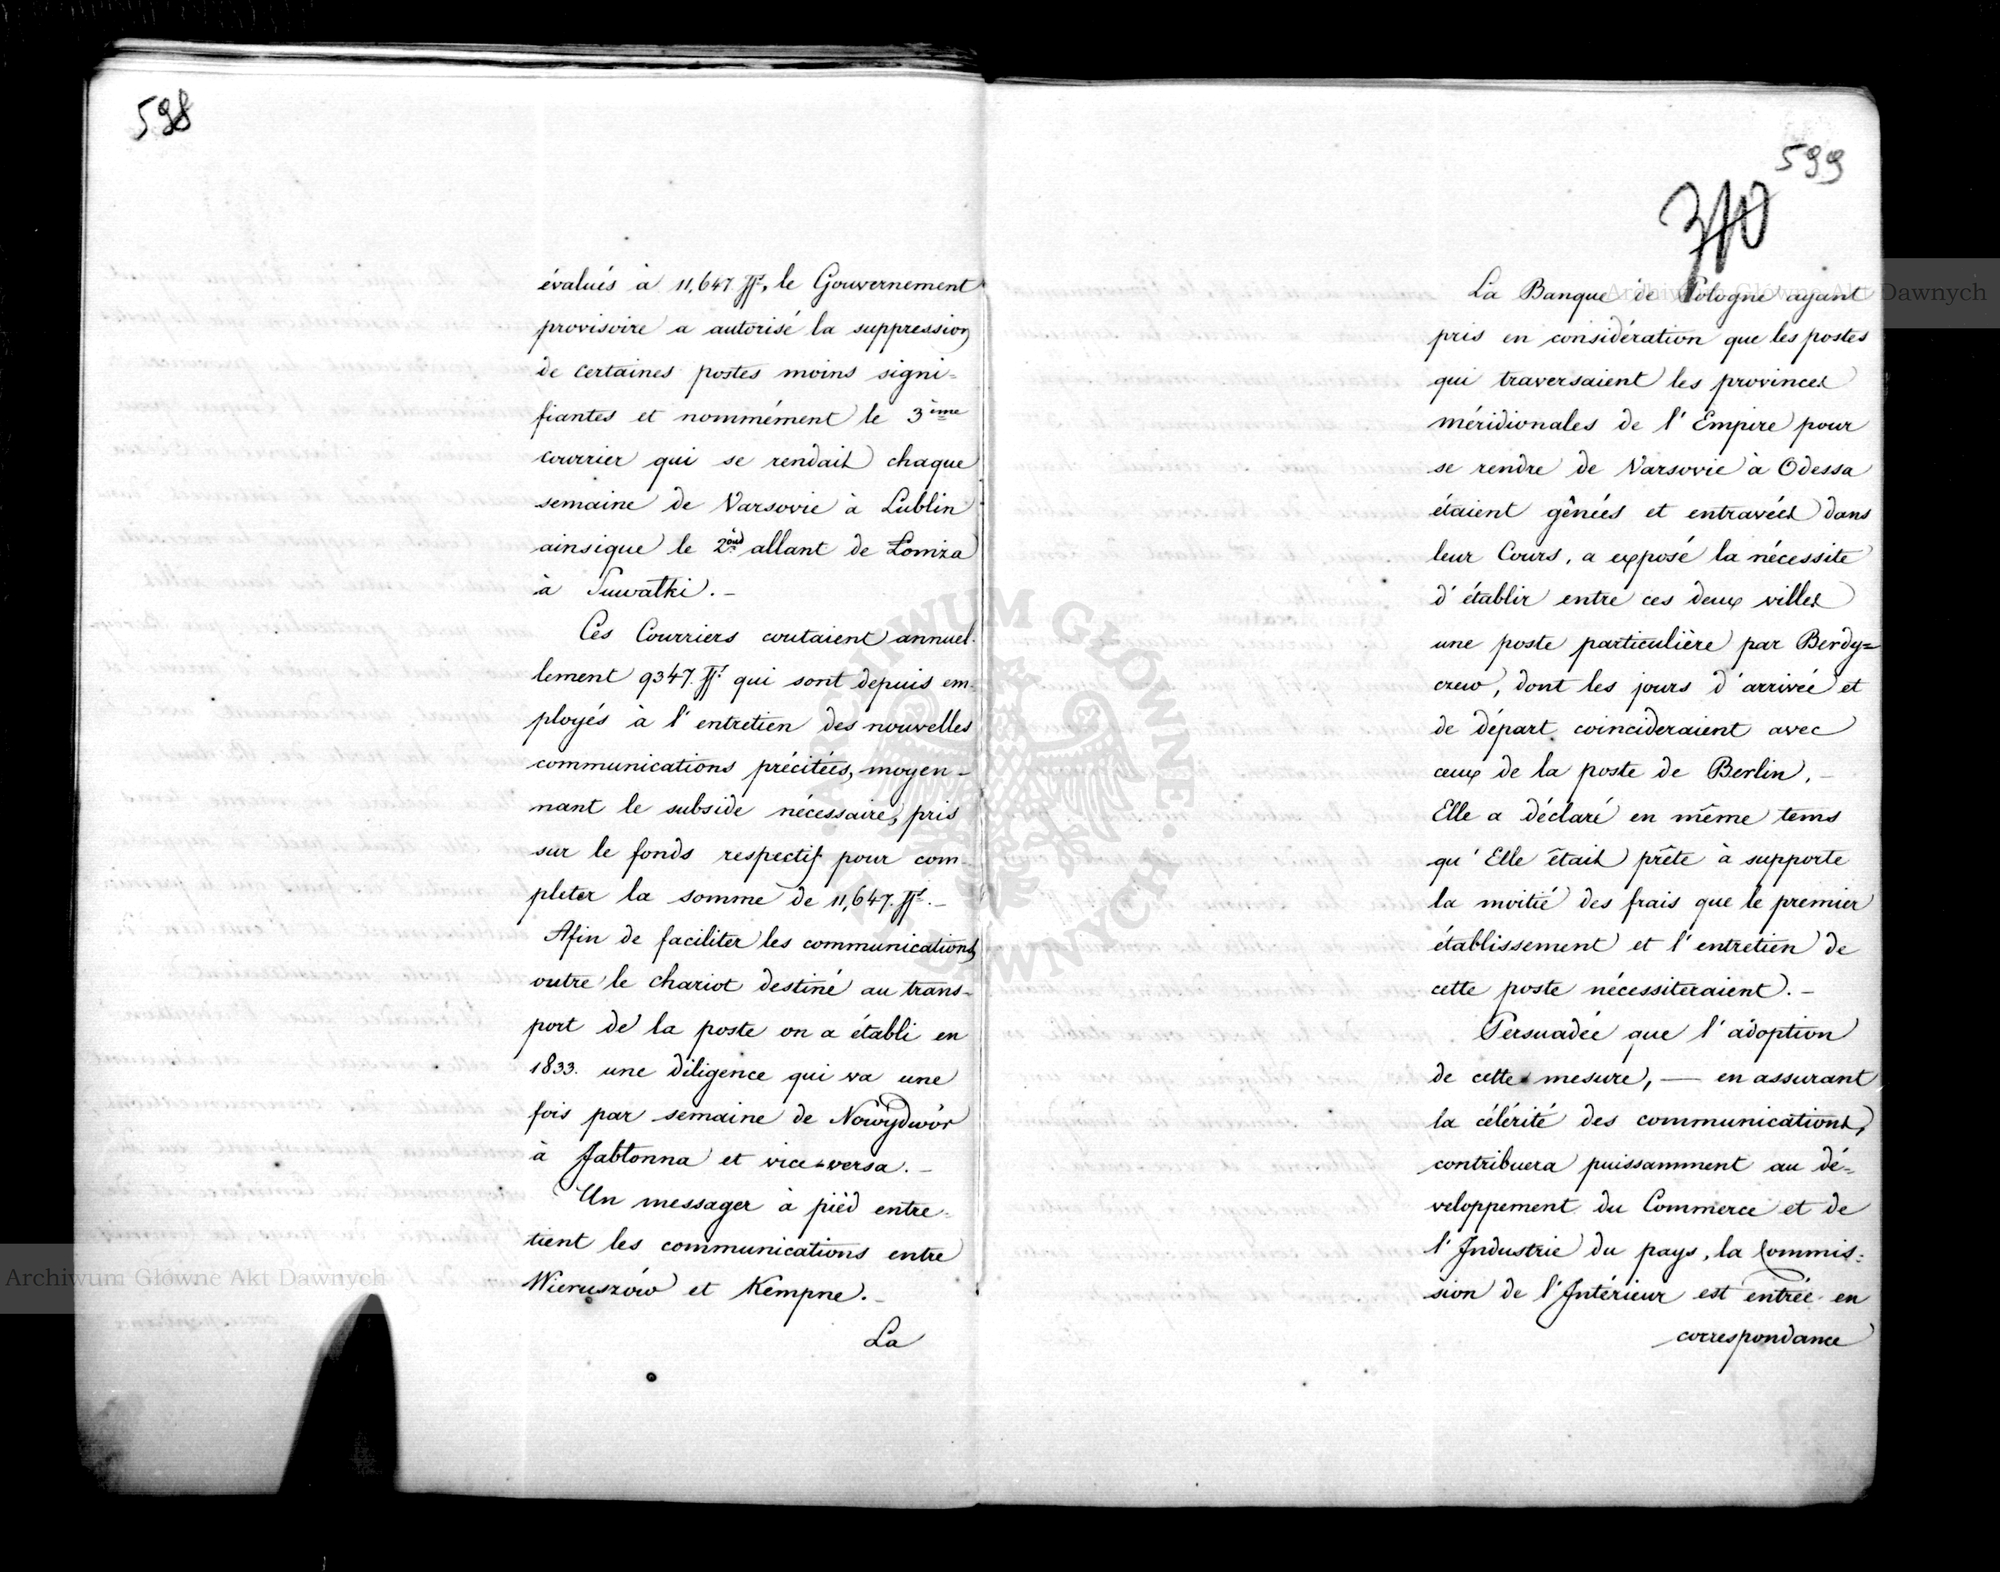 598
évalués à 11,647. fl., le Gouvernement
provisoire a autorisé la suppression
de certaines postes moins signi=
fiantes et nommément le 3ème
courrier qui se rendait chaque
semaine de Varsovie à Lublin
ainsique le 2ond allant de Lomza
à Suwałki. –
Ces Courriers coutaient annuel-
lement 9347. fl. qui sont depuis em-
ployés à l'entretien des nouvelles
communications précitées, moyen-
nant le subside nécessaire, pris
sur le fonds respectif pour com-
pleter la somme de 11,647. fl. –
Afin de faciliter les communications,
outre le chariot destiné au trans-
port de la poste on a établi en
1833. une diligence qui va une
fois par semaine de Nowydwór
à Jabłonna et vice-versa. –
Un messager à pièd entre-
tient les communications entre
Wieruszów et Kempne. –
La
599
310
La Banque de Pologne ayant
pris en considération que les postes
qui traversaient les provinces
méridionales de l'Empire pour
se rendre de Varsovie à Odessa
étaient gênées et entravées dans
leur Cours, a exposé la nécessite
d'établir entre ces deux villes
une poste particulière par Berdy=
czew, dont les jours d'arrivée et
de départ coincideraient avec
ceux de la poste de Berlin. –
Elle a déclaré en même tems
qu'Elle était prête à supporte
la moitié des frais que le premier
établissement et l'entretien de
cette poste nécessiteraient. –
Persuadée que l'adoption
de cette mesure, — en assurant
la célérité des communications,
contribuera puissamment au dé-
veloppement du Commerce et de
l'Industrie du pays, la Commis-
sion de l'Intérieur est entrée en
correspondance
Archiwum Główne Akt Dawnych
Archiwum Główne Akt Dawnych
ARCHIWUM GŁÓWNE AKT DAWNYCH